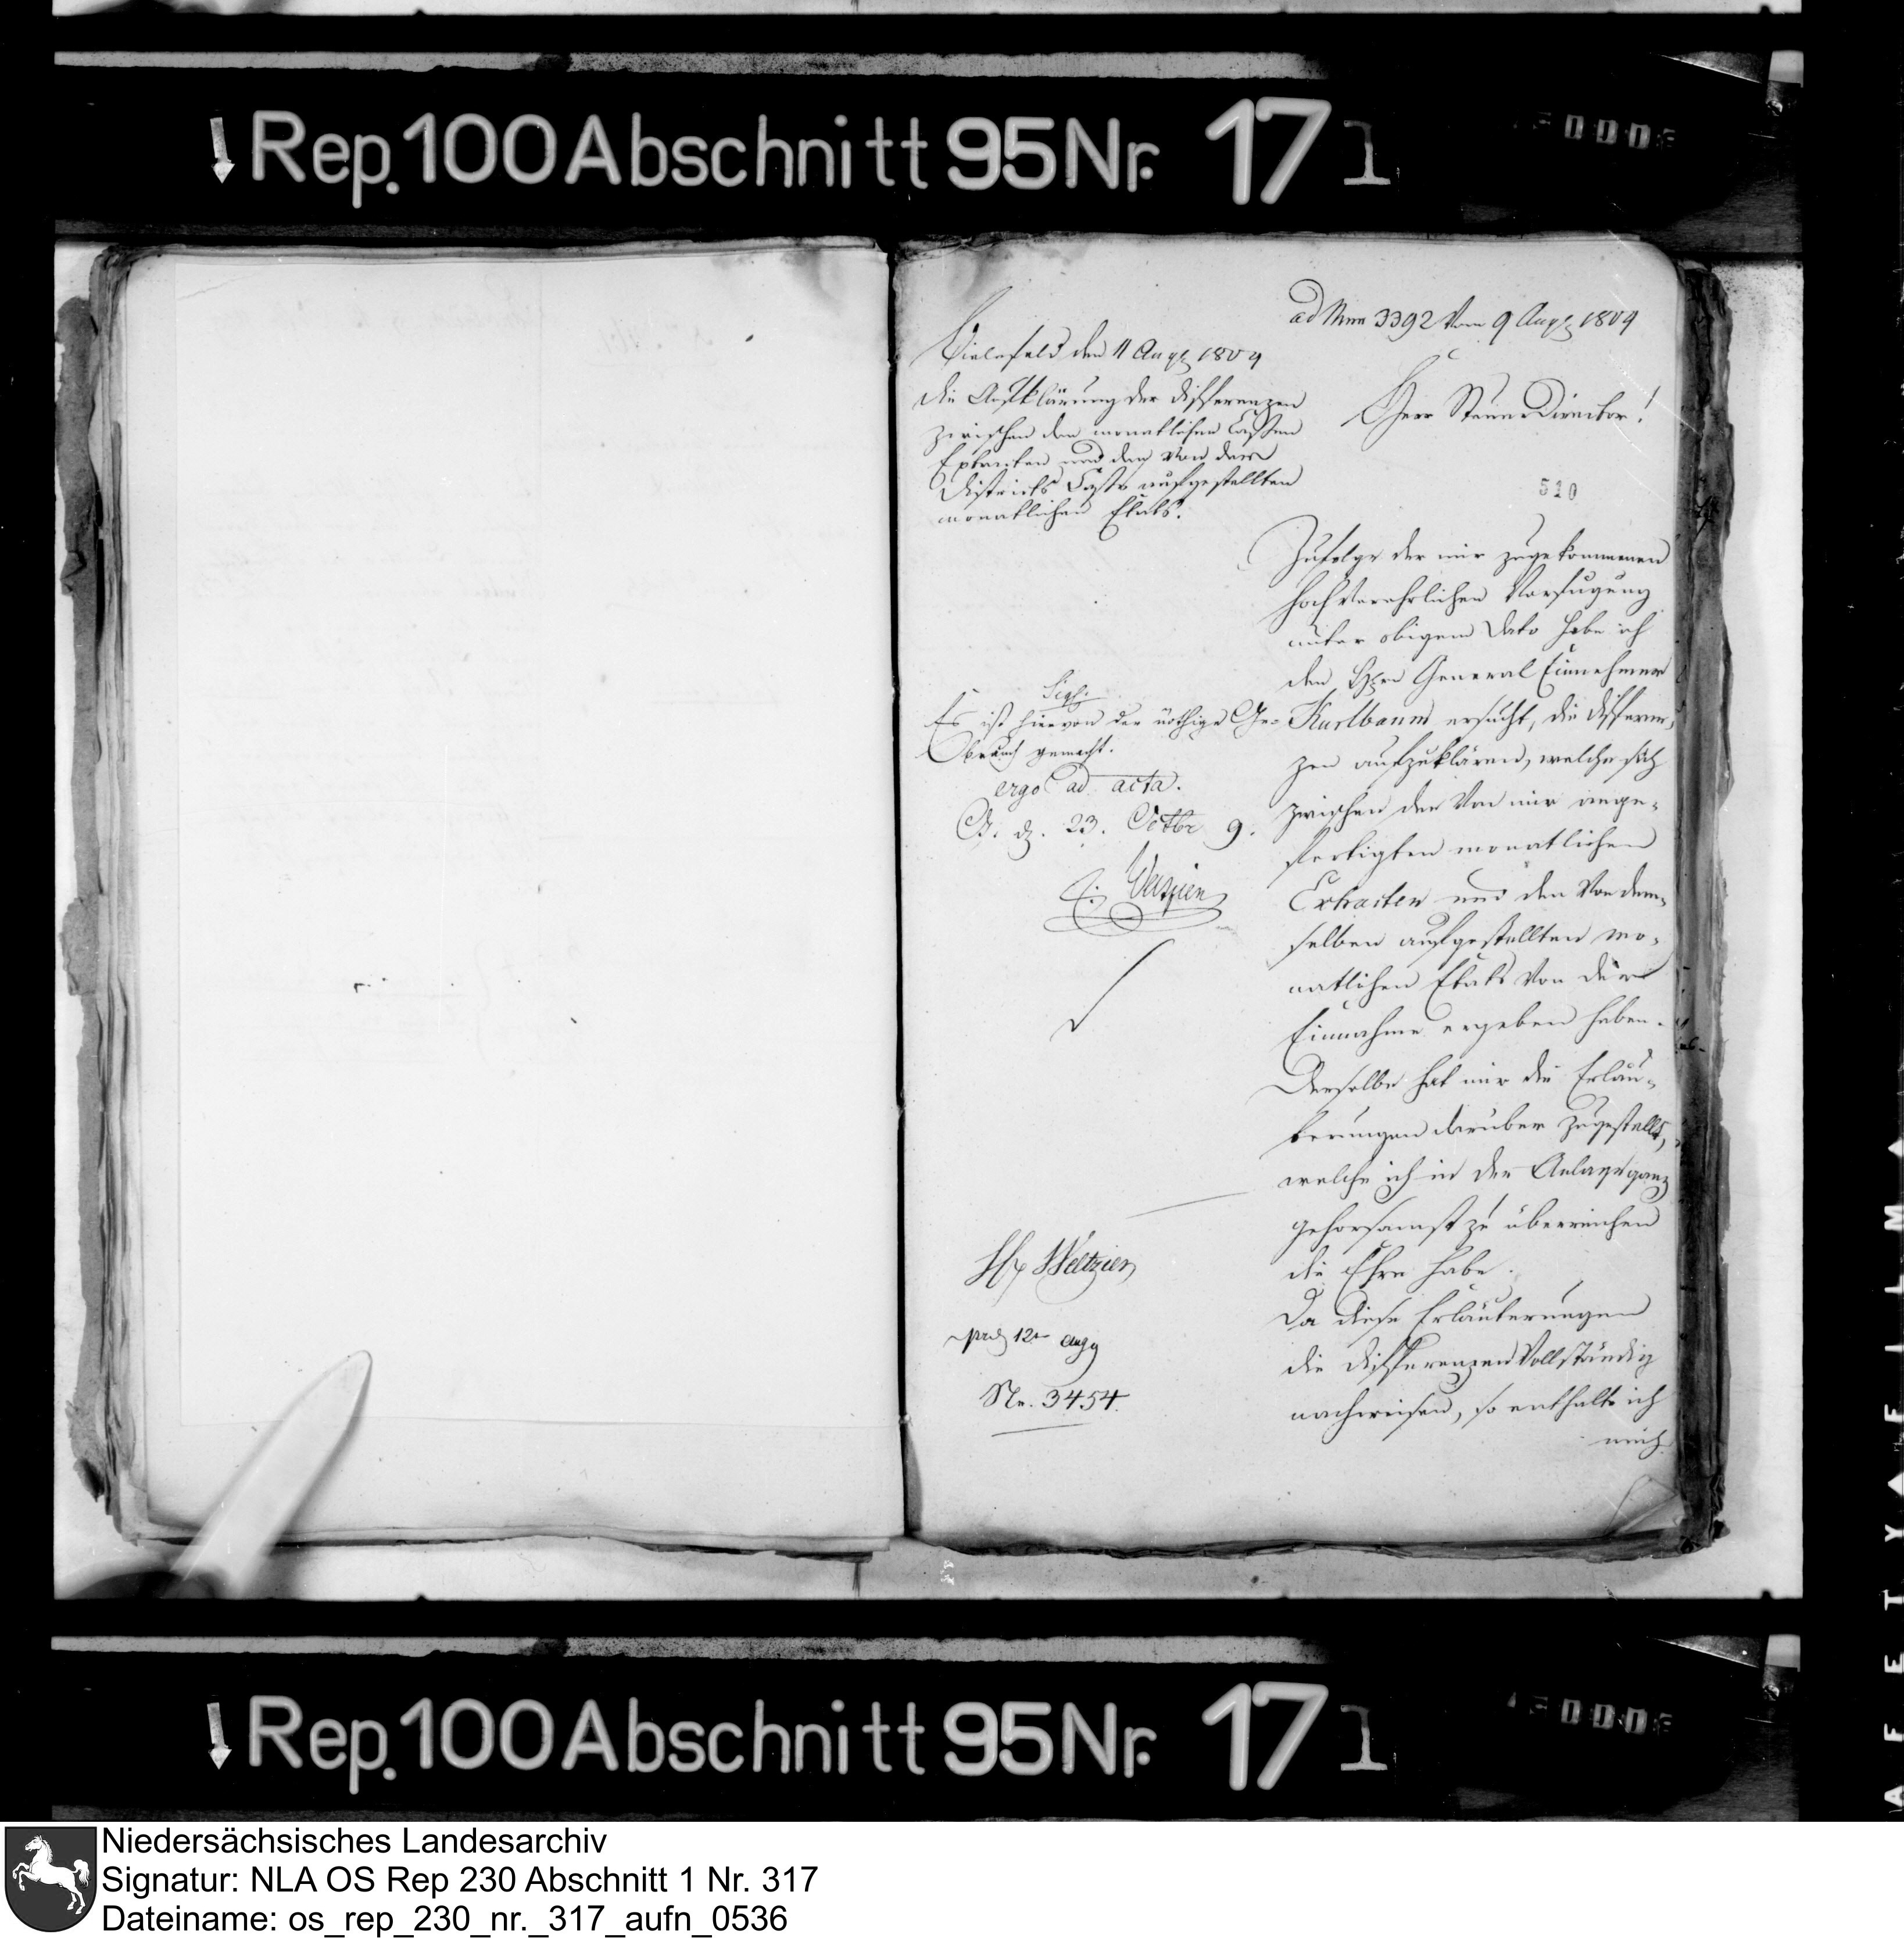 Rep. 100 Abschnitt 95 Nr. 171
ad Num 3392 vom 9 Aug 1809
Bielefeld den 11 Aug 1809
Die Aufklärung der Differenzen
zwischen den monatlichen Cassen
Extracten und den von dem
Districts Casse aufgestellten
monatlichen Etats.
Herr Steuer Director!
510
Zufolge der mir zugekommenen
hochverehrlichen Verfügung
unter obigem Dato habe ich
den Hrn General Einnehmer
Kurlbaum ersucht, die Differen,
zen aufzuklären, welche sich
zwischen den von mir ange,
fertigten monatlichen
Extracten und den von dem,
selben aufgestellten mo,
natlichen Etats von der
Einnahme ergeben haben.
Derselbe hat mir die Erläu,
terungen darüber zugestellt,
welche ich in der Anlage ganz
gehorsamst zu überreichen
die Ehre habe.
Da diese Erläuterungen
die Differenzen vollständig
nachweisen, so enthalte ich
mich
Es ist hiervon der nöthige Ge=
brauch gemacht.
ergo ad acta.
d. 23. Octbr 9.
Weltzien
H Weltzien
prs 12 Aug 9
Nr. 3454.
Rep. 100 Abschnitt 95 Nr. 171
Niedersächsisches Landesarchiv
Signatur: NLA OS Rep 230 Abschnitt 1 Nr. 317
Dateiname: os_rep_230_nr._317_aufn_0536